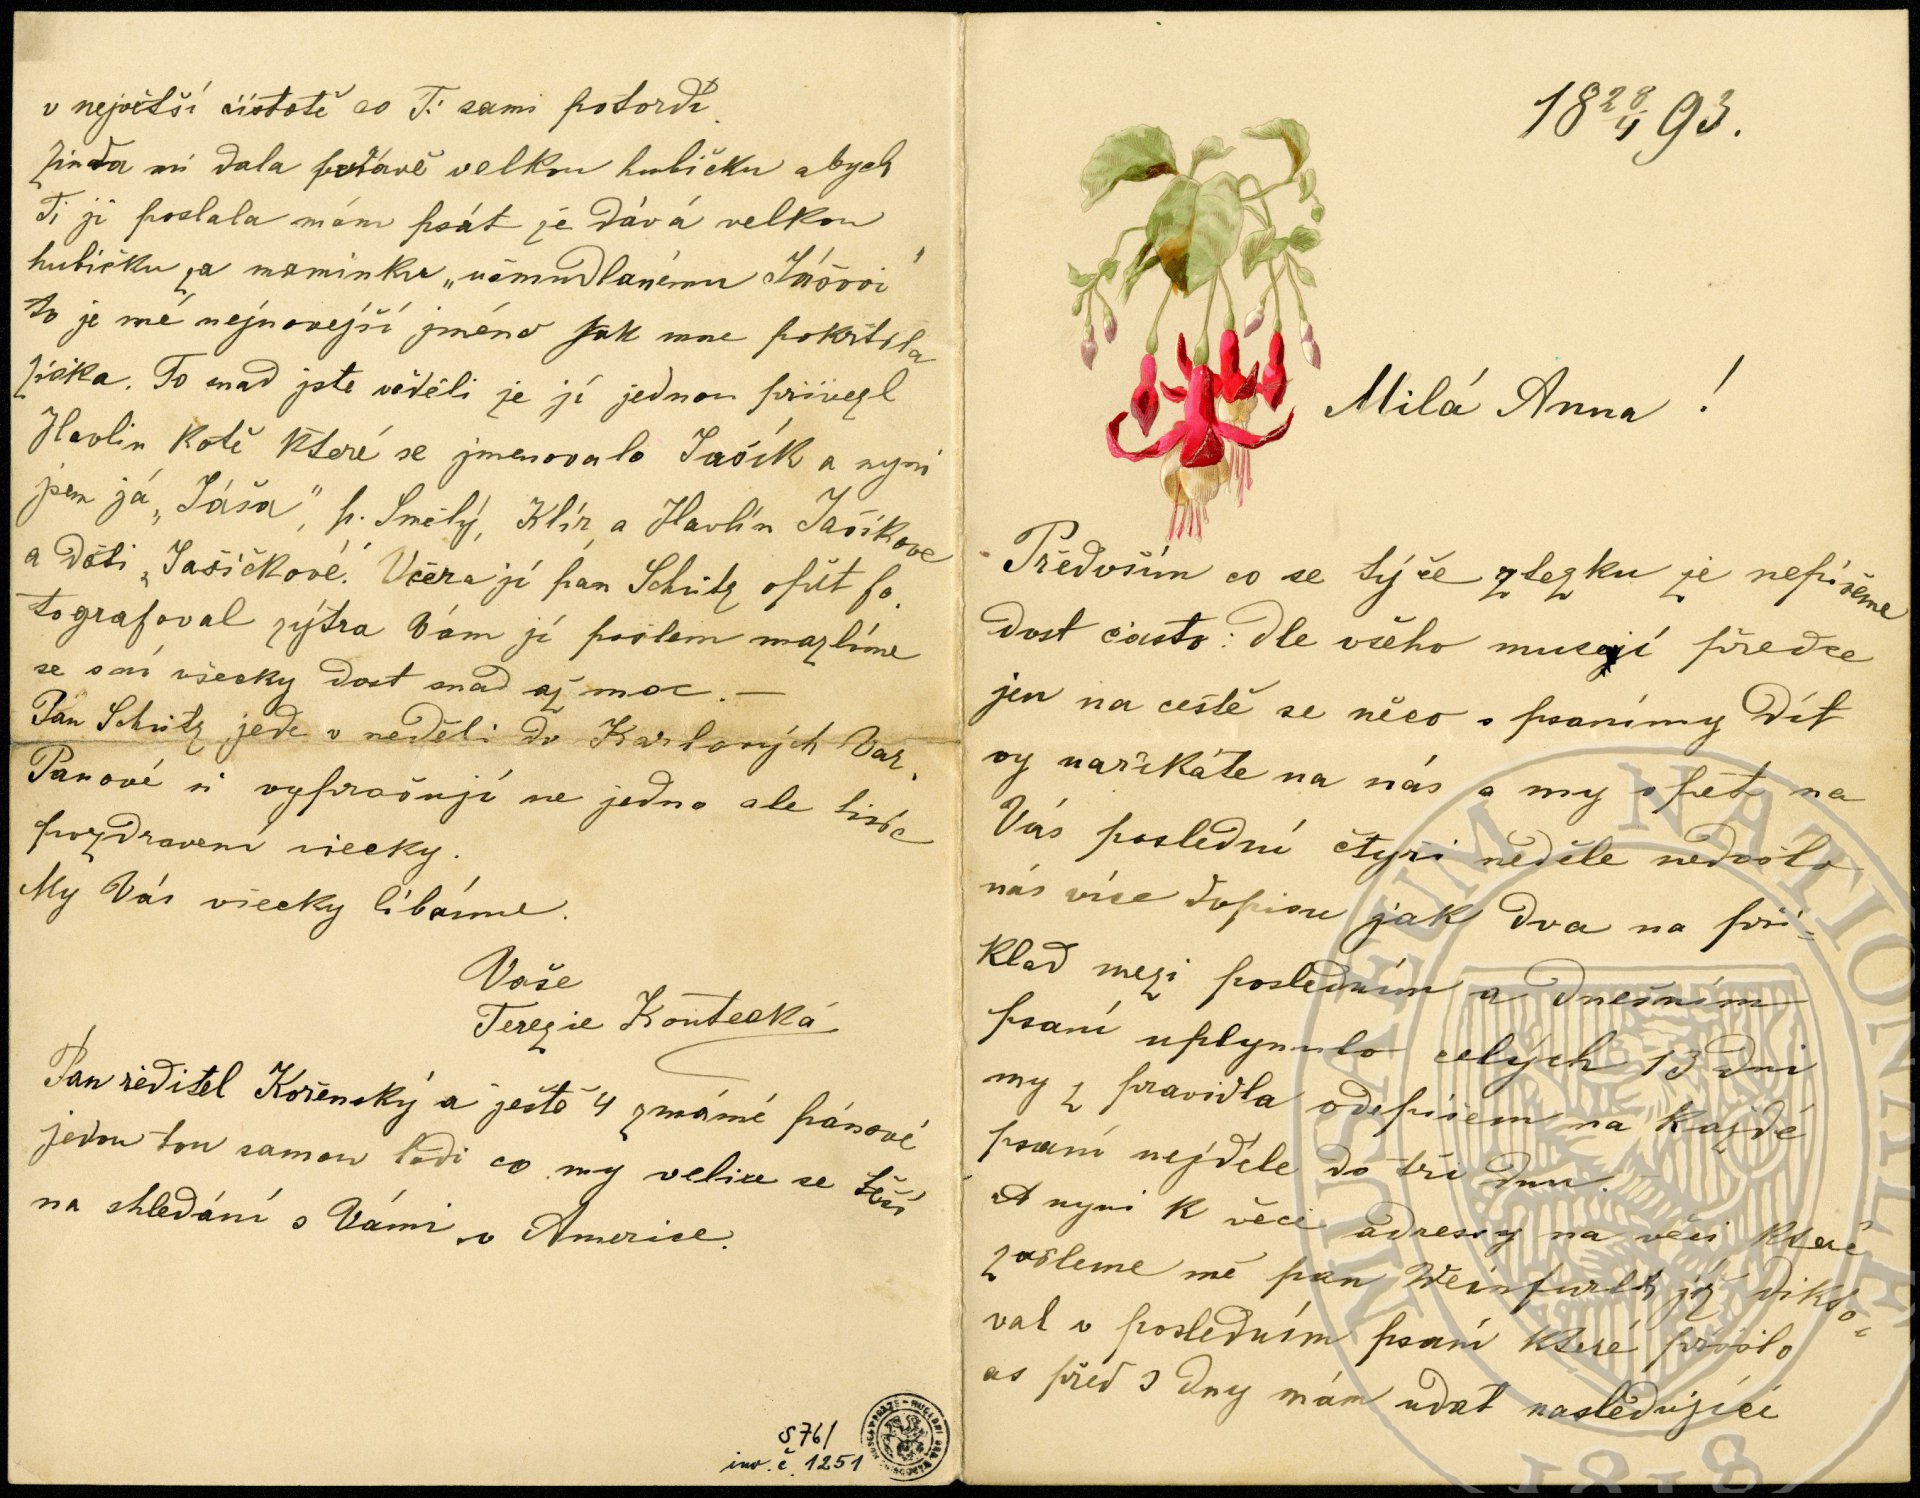 18 28/4 93.
Milá Anna!
Předvším co se týče ztezku že nepíšeme
dost často: dle všeho musejí předce
jen na cestě se něco s psanímy dít
vy naříkáte na nás a my opět na
Vás poslední čtyři neděle nedošlo
nás více dopisu jak dva na pří=
klad mezi posledním a dnešním
psaní uplynulo celých 13 dní
my z pravidla odepíšem na každé
psaní nejdéle do tří dnu.
A nyni k věci adressy na věci které
zašleme mě pan Weinfurlt již dikto=
val v posledním psaní které přišlo
as před 3 dny mám udat následující
v největší čistotě co Ti sami potvrdí.
Zinda mi dala právě velkou hubičku abych
Ti ji poslala mám psát že dává velkou
hubičku za maminku „ušmudlanému Jášovi"
to je mé nejnovější jméno jak mne pokřtila
Zička. To snad jste věděli že jí jednou přivezl
Havlin kotě které se jmenovalo Jašík a nyni
jsem já „Jáša", p. Smělý, Klír, a Havlín Jašíkove
a děti „Jašíčkové". Včera jí pán Schütz opět fo.
tografoval zýtra Vám jí pošlem mazlíme
se sní všecky dost snad až moc. —
Pan Schütz jede v neděli do Karlových Var.
Panové si vyprošují ne jedno ale tisíc
pozdravení všecky.
My Vás všecky líbáme.
Vaše
Terezie Koutecká
Pan ředitel Kořenský a ještě 4 známé pánové
jedou tou samou lodi co my velice se těší
na shledání s Vámi v Americe.
S 76/
inv. č. 1251
MUSAEUM NATIONALE
1818